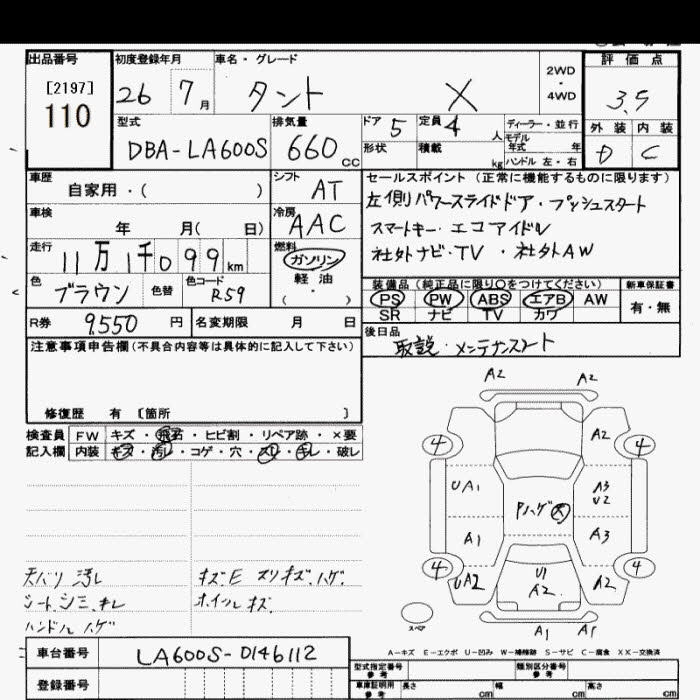 出品番号
[2197]
110
初度登録年月
26 7月
車名・グレード
タント X
2WD
・
4WD
評価点
3.5
外装 内装
D C
型式
DBA-LA600S
排気量
660cc
ドア 5
定員 4人
ディーラー・並行
モデル年式 年
形状
積載 kg
ハンドル 左・右
車歴
自家用・( )
シフト
AT
車検
年 月( 日)
冷房
AAC
走行
11万1千099km
燃料
ガソリン
軽油
( ・ )
色
ブラウン
色替
色コード
R59
R券 9,550円
名変期限 月 日
セールスポイント(正常に機能するものに限ります)
左側パワースライドドア・プッシュスタート
スマートキー・エコアイドル
社外ナビ・TV・社外AW
装備品(純正品に限り○をつけてください)
PS PW ABS エアB AW
SR ナビ TV カワ
新車保証書
有・無
後日品
取説・メンテナンスノート
注意事項申告欄(不具合内容等は具体的に記入して下さい)
修復歴 有 〔箇所 〕
検査員
記入欄
FW キズ・飛石・ヒビ割・リペア跡・×要
内装 キズ・汚レ・コゲ・穴・スレ・キレ・破レ
天バリ 汚レ
シート シミ、キレ
ハンドル ハゲ
キズE スリキズ、ハゲ
ホイール キズ
A2 A2
A2
4 4
UA1
A3
U2
Pハゲ大
A1
A3
4 4
UA2
U1
A2
A2
A1 A1
スペア
A-キズ E-エクボ U-凹み W-補修跡 S-サビ C-腐食 XX-交換済
車台番号
LA600S-0146112
登録番号
型式指定番号
参考
類別区分番号
参考
車庫証明用
参考
長さ cm
幅 cm
高さ cm